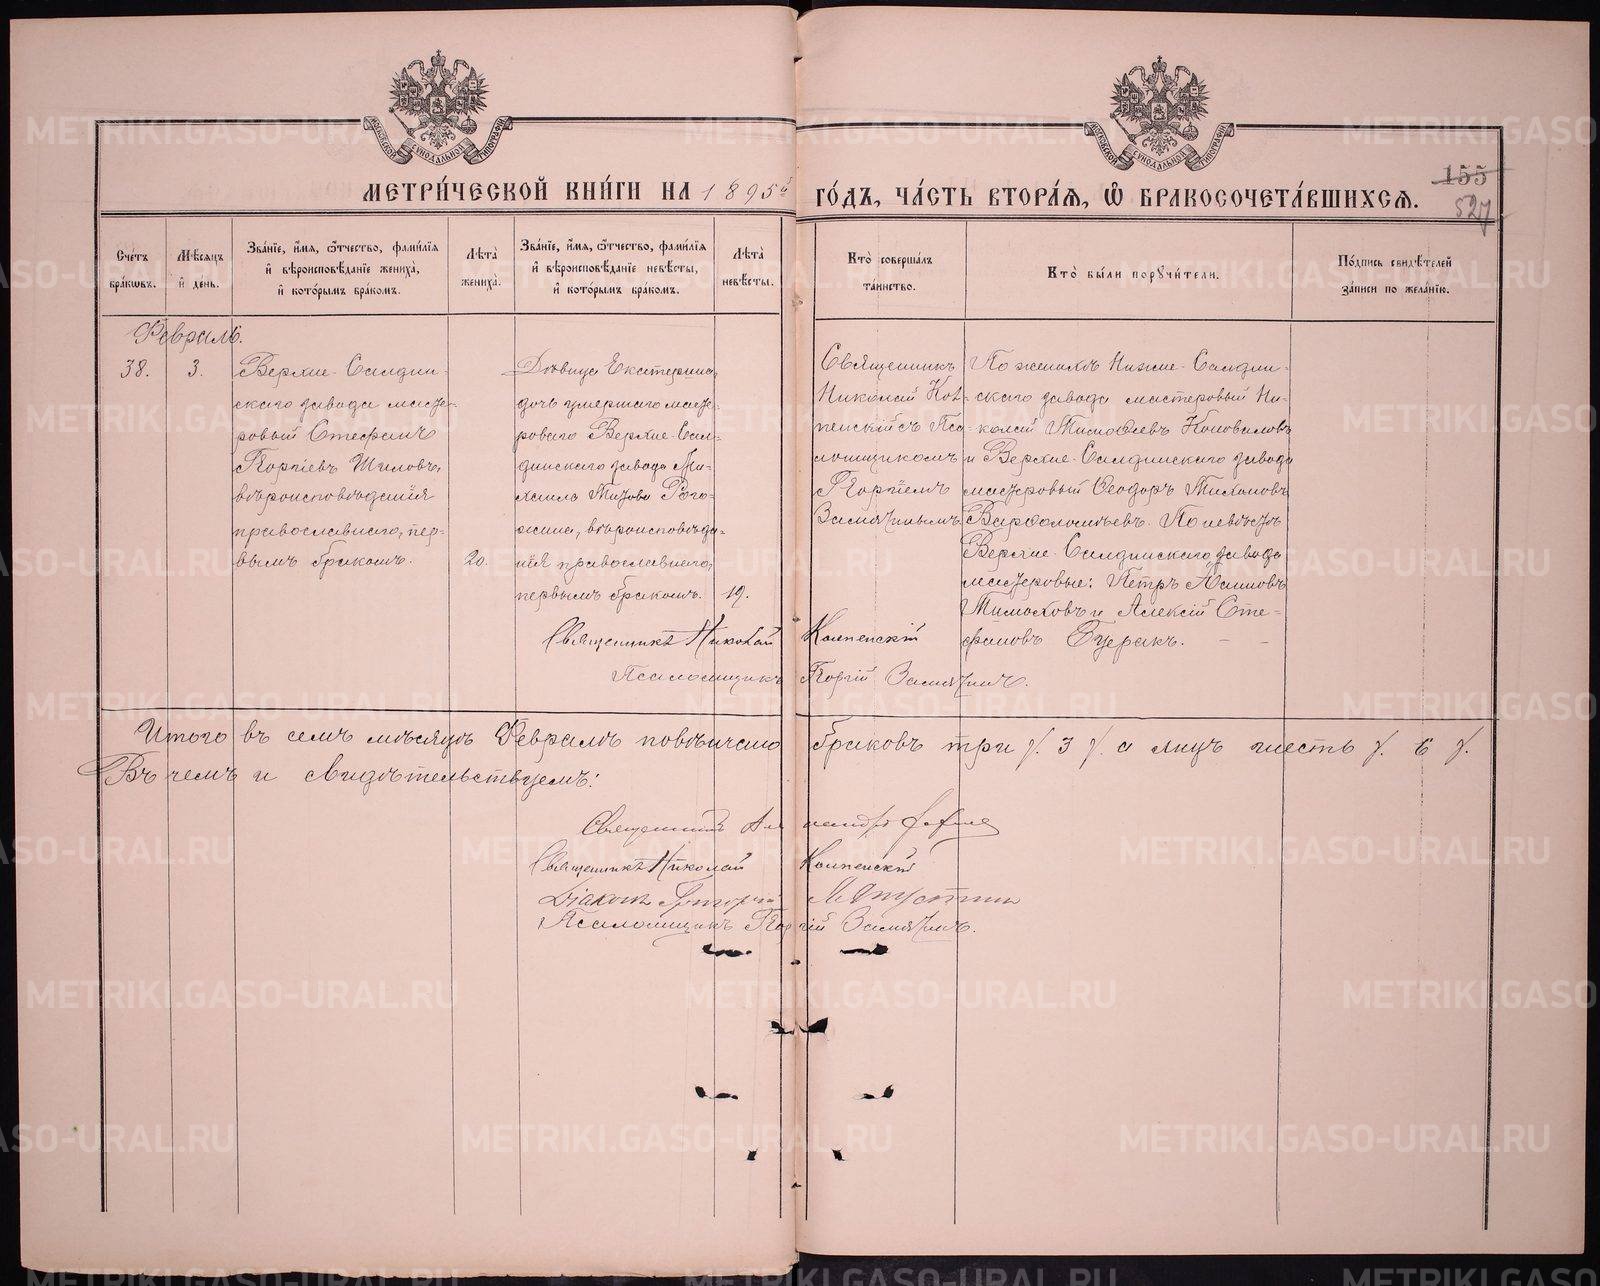 МОСКОВСКОЙ СѴНОДАЛЬНОЙ ТИПОГРАФІИ
МОСКОВСКОЙ СѴНОДАЛЬНОЙ ТИПОГРАФІИ
МЕТРИ́ЧЕСКОЙ КНИ́ГИ НА 1895й ГО́ДЪ, ЧА́СТЬ ВТОРА́Я, Ѽ БРАКОСОЧЕТА́ВШИХСЯ.
155
527
Сче́тъ бра́кѡвъ.
Мѣ́сяцъ и҆ де́нь.
Зва́нїе, и҆́мя, ѻ҆́тчество, фами́лїя и҆ вѣроисповѣ́данїе жениха̀, и҆ кото́рымъ бра́комъ.
Лѣ́та жениха̀.
Зва́нїе, и҆́мя, ѻ҆́тчество, фами́лїя и҆ вѣроисповѣ́данїе невѣ́сты, и҆ кото́рымъ бра́комъ.
Лѣ́та невѣ́сты.
Кто̀ соверша́лъ та́инство.
Кто̀ бы́ли порꙋчи́тели.
По́дпись свидѣ́телей за́писи по жела́нїю.
Февраль.
38.
3.
Верхне-Салдин-
скаго завода масте-
ровый Стефанъ
Георгіевъ Шиловъ,
вѣроисповѣданія
православнаго, пер-
вымъ бракомъ.
20.
Дѣвица Екатерина,
дочь умершаго масте-
роваго Верхне-Сал-
динскаго завода Ми-
хаила Титова Рого-
жина, вѣроисповѣда-
нія православнаго,
первымъ бракомъ.
19.
Священникъ
Николай
съ Пса-
ломщикомъ
Георгіемъ
Замятнинымъ
По женихѣ Нижне-Салдин-
скаго завода мастеровый Ни-
колай Тимоѳеевъ Коноваловъ
и Верхне-Салдинскаго завода
мастеровый Ѳеодоръ Тихоновъ
Варѳоломѣевъ. По невѣстѣ
Верхне-Салдинскаго завода
мастеровые: Петръ
и Алексій Сте-
фановъ
Священникъ Николай
Псаломщикъ Георгій Замятнинъ.
Итого въ семъ мѣсяцѣ Февралѣ повѣнчано браковъ три /. 3 /. а лицъ шесть /. 6 /.
Въ чемъ и свидѣтельствуемъ:
Священникъ Александръ
Священникъ Николай
Діаконъ Григорій
Псаломщикъ Георгій Замятнинъ.
METRIKI.GASO-URAL.RU